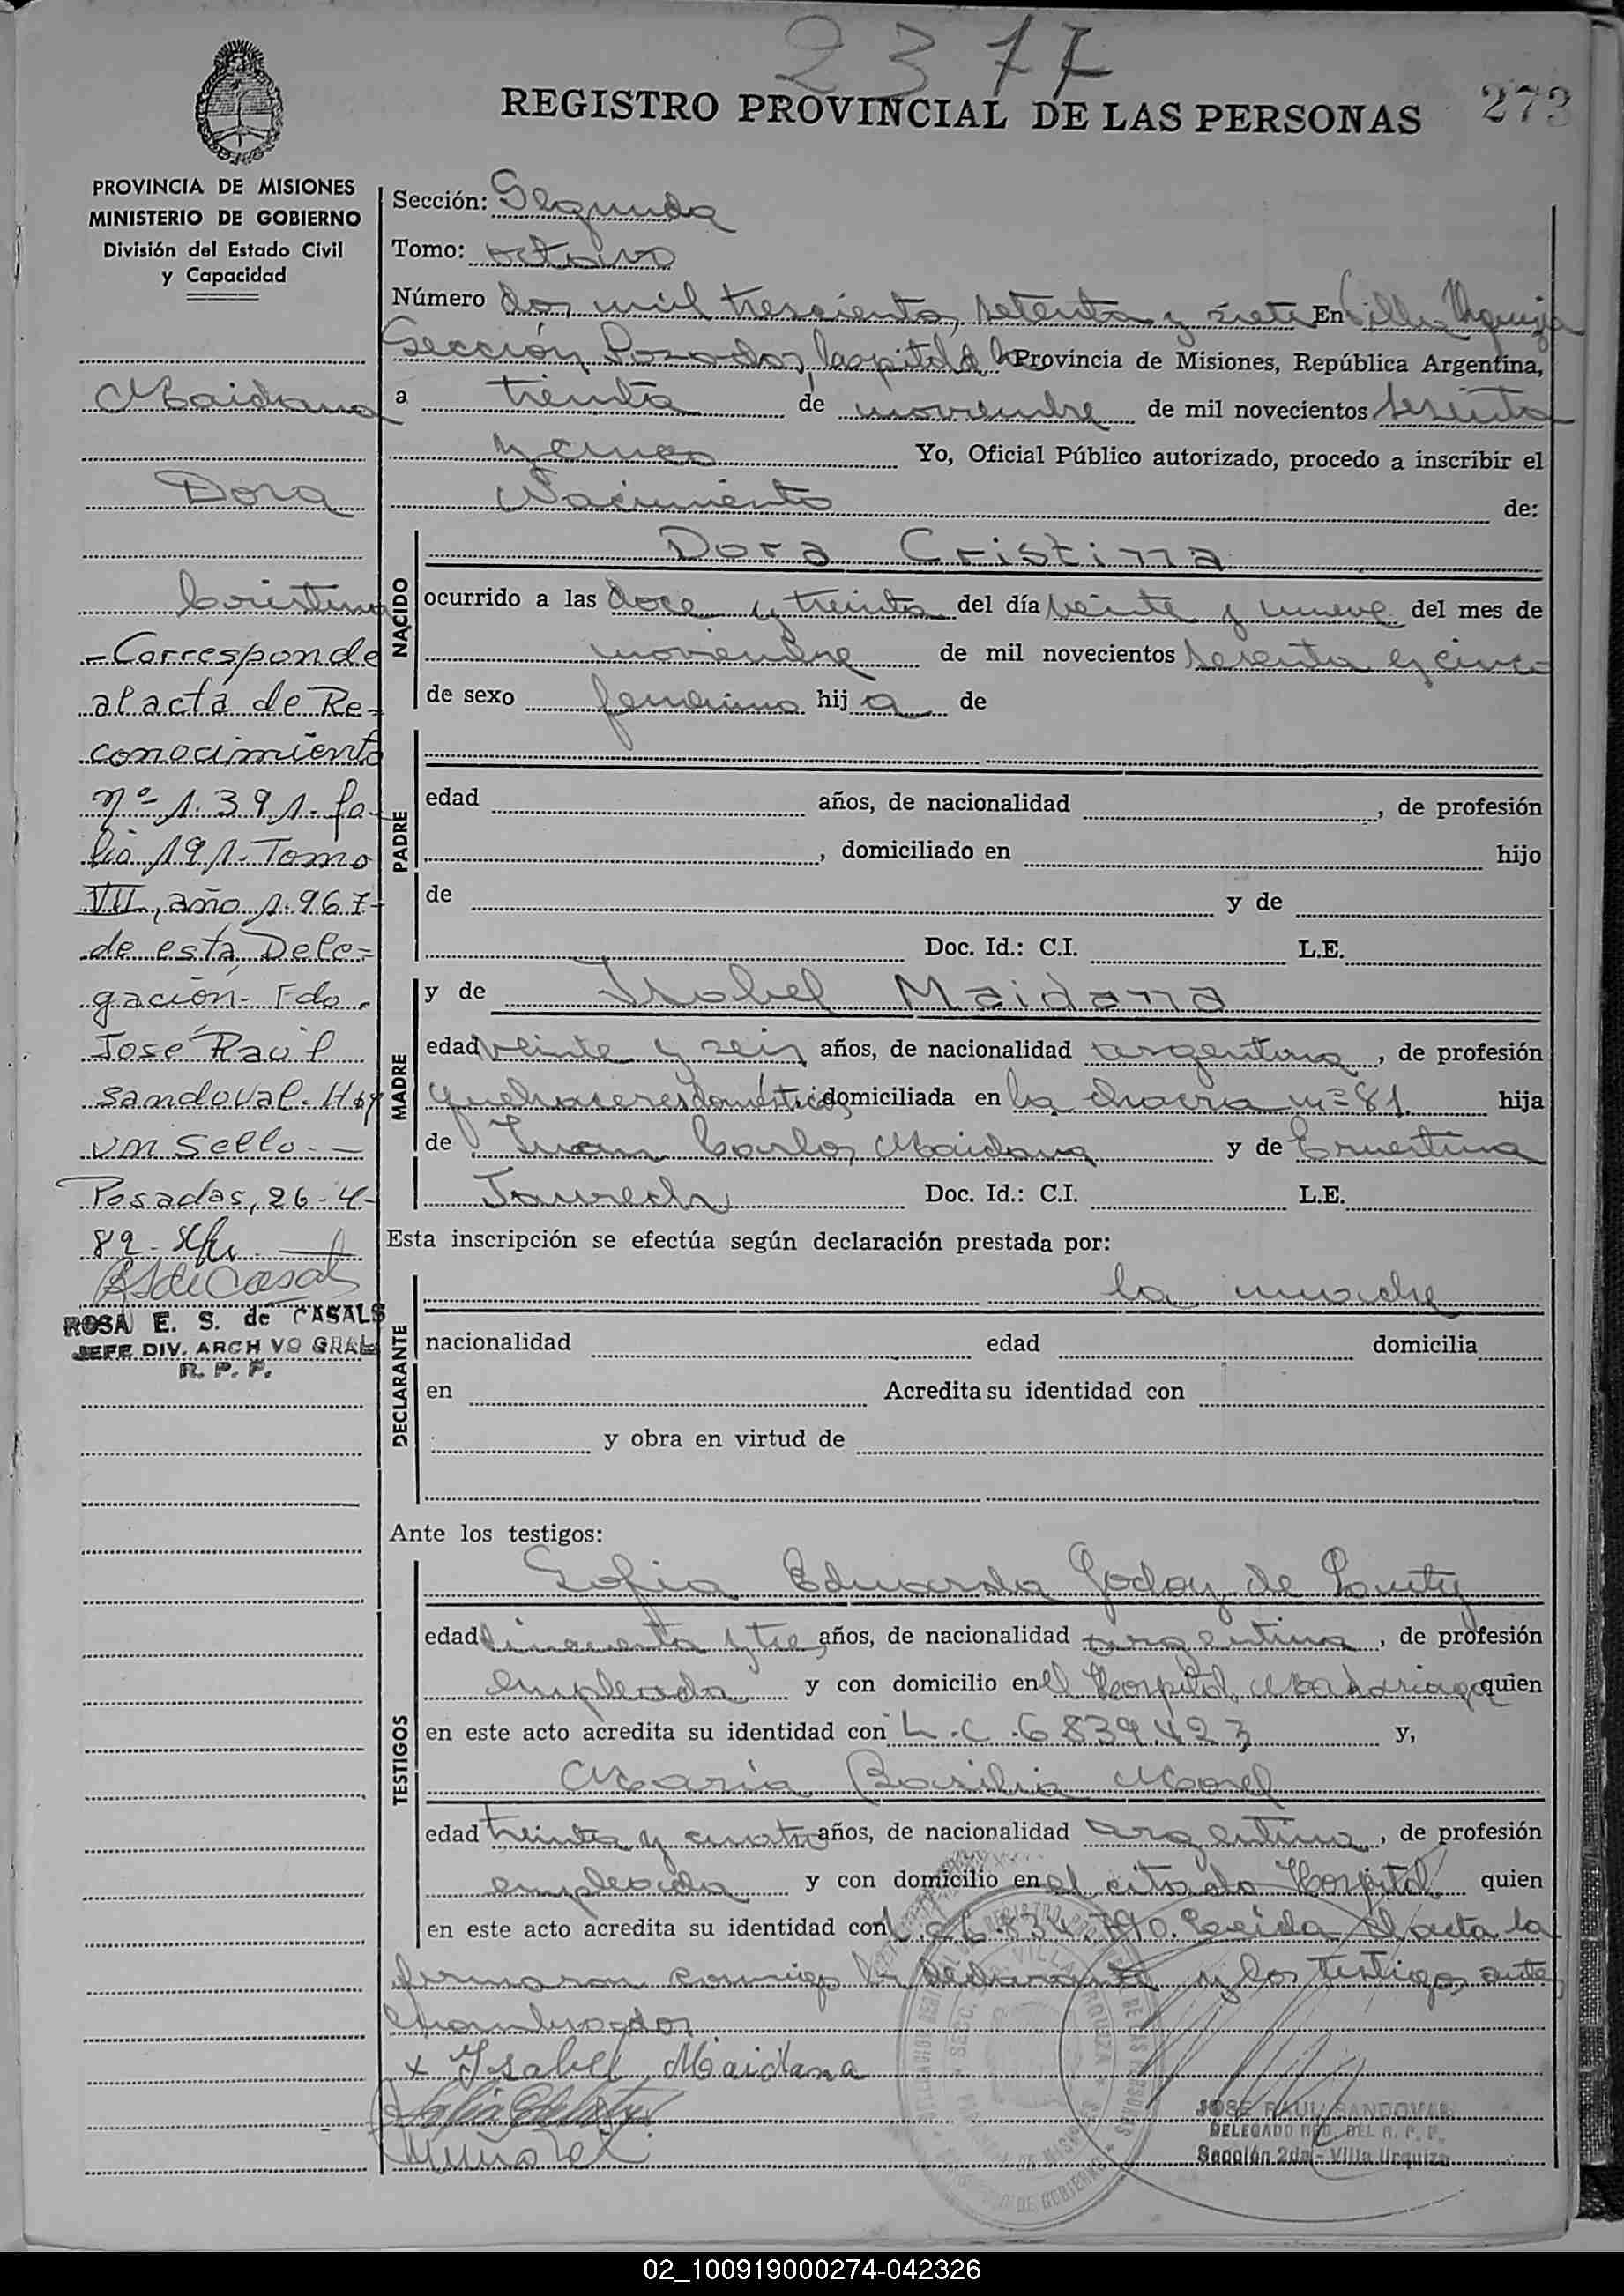 2377
REGISTRO PROVINCIAL DE LAS PERSONAS
273
PROVINCIA DE MISIONES
MINISTERIO DE GOBIERNO
División del Estado Civil
y Capacidad
Maidana
Dora
Cristina
- Corresponde
al acta de Re-
conocimiento
nº 1.391 - fo-
lio 191 - Tomo
VII, año 1.967-
de esta Dele-
gación - Fdo.
José Raúl
Sandoval. Hay
un sello. —
Posadas, 26-4-
82 -
ROSA E. S. de CASALS
JEFE DIV. ARCH VO GRAL
R. P. P.
Sección: Segunda
Tomo: octavo
Número dos mil trescientos setenta y siete En Villa Urquiza
Sección Posados, Capital de la Provincia de Misiones, República Argentina,
a treinta de noviembre de mil novecientos sesenta
y cinco Yo, Oficial Público autorizado, procedo a inscribir el
Nacimiento de:
NACIDO
Dora Cristina
ocurrido a las doce y treinta del día veinte y nueve del mes de
noviembre de mil novecientos sesenta y cinco
de sexo femenino hij a de
PADRE
edad años, de nacionalidad , de profesión
, domiciliado en hijo
de y de
Doc. Id.: C.I. L.E.
MADRE
y de Isabel Maidana
edad veinte y seis años, de nacionalidad argentina, de profesión
quehaceres domésticos domiciliada en la chacra nº 81. hija
de Juan Carlos Maidana y de Ernestina
Doc. Id.: C.I. L.E.
Esta inscripción se efectúa según declaración prestada por:
DECLARANTE
la madre
nacionalidad edad domicilia
en Acredita su identidad con
y obra en virtud de
Ante los testigos:
TESTIGOS
Sofia Eduarda Godoy de
edad cincuenta y tres años, de nacionalidad argentina, de profesión
empleada y con domicilio en el Hospital Madariaga quien
en este acto acredita su identidad con L.C. 6839.423 y,
María Basilia Morel
edad treinta y cuatro años, de nacionalidad argentina, de profesión
empleada y con domicilio en el citado Hospital quien
en este acto acredita su identidad con L.C 6.834.790. Leida el acta la
firmaron conmigo la declarante y los testigos ante
nombrados
x Ysabel Maidana
JOSE RAUL SANDOVAL
DELEGADO REG. DEL R. P. P.
Sección 2da - Villa Urquiza
02_100919000274-042326